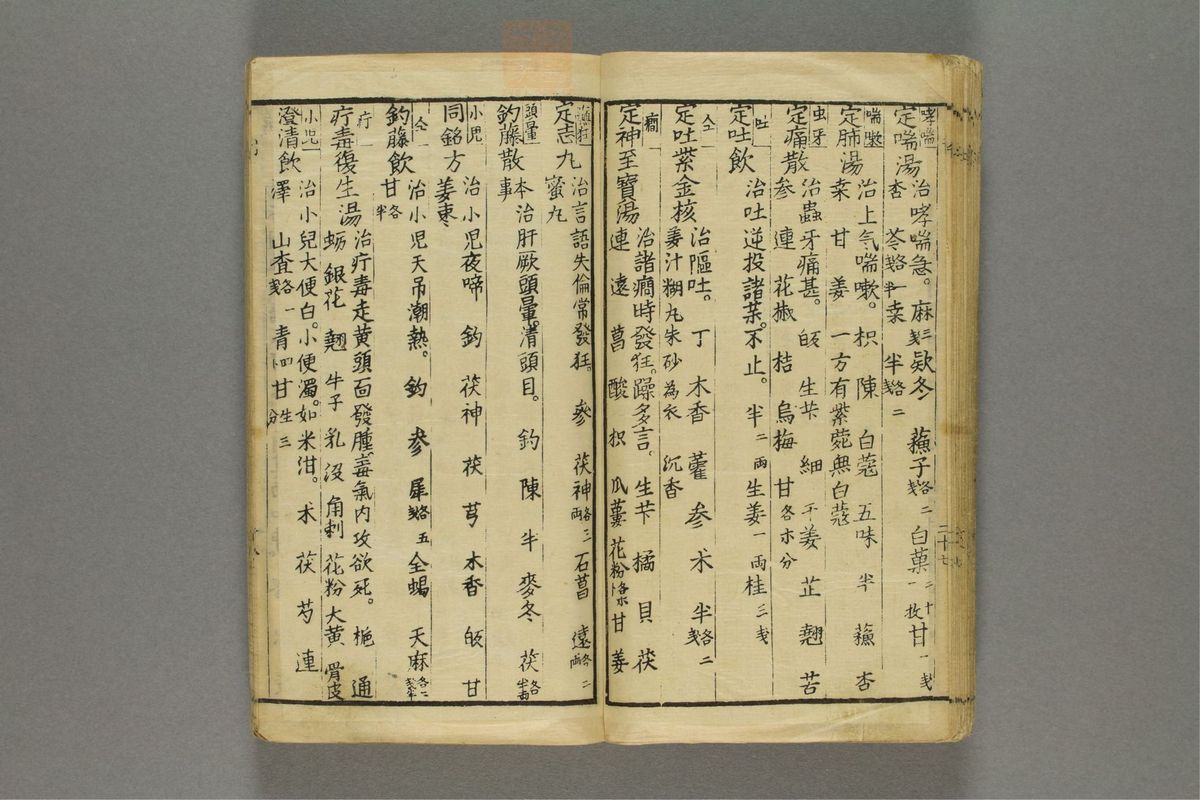 哮喘
定喘湯 治哮喘急。麻三戔 欵冬 蘓子各二戔 白菓二十一枚 甘一戔
杏 苓各一戔半 桒 半各二戔
喘嗽
定肺湯 治上气喘嗽。枳 陳 白蔻 五味 半 蘓 杏
桒 甘 姜 一方有紫菀無白蔻
虫牙
定痛散 治蟲牙痛甚。皈 生芐 細 干姜 芷 翹 苦
参 連 花椒 桔 烏梅 甘各
吐
定吐飲 治吐逆投諸菜。不止。半二両 生姜一両 桂三戔
仝
定吐紫金核 治嘔吐。丁 木香 藿 参 朮 半各二戔
姜汁糊丸朱砂為衣 沉香
癇
定神至寶湯 治諸癇時發狂。躁多言。生芐 橘 貝 茯
連 遠 菖 酸 枳 瓜蔞 花粉 甘 姜
定志丸 治言語失倫常發狂。 參 茯神各三両 石菖 遠各二両
蜜丸
頭暈
釣藤散 本治肝厥頭暈。清頭目。 釣 陳 半 麥冬 茯各半両
事
小児
同銘方 治小児夜啼 釣 茯神 茯 芎 木香 皈 甘
姜枣
仝
釣藤飲 治小児天吊潮熱。 釣 参 犀各五戔 全蝎 天麻
甘各半
疔
疔毒復生湯 治疔毒走黄頭面發腫。毒氣内攻欲死。 栀 通
蛎 銀花 翹 牛子 乳 没 角刺 花粉 大黄 骨皮
小児
澄清飲 治小兒大便白。小便濁。如米泔。 朮 茯 芍 連
澤 山査各一戔 青 甘生三分
二十七